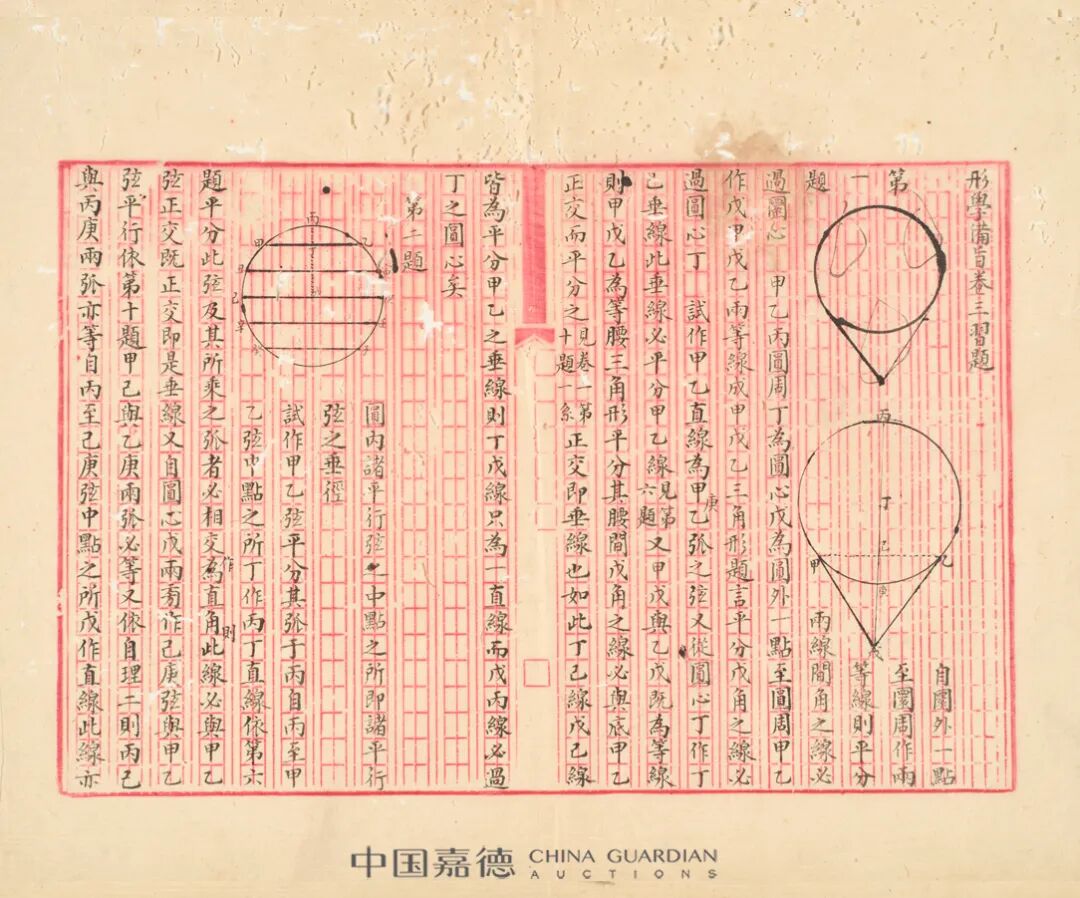 形學備旨卷三習題
第一題
自圜外一點
至圜周作兩
等線則平分
兩線間角之線必
過圜心
甲乙丙圜周丁為圜心戊為圜外一點至圜周甲乙
作戊甲戊乙兩等線成甲戊乙三角形題言平分戊角之線必
過圜心丁 試作甲乙直線為甲庚乙弧之弦又從圜心丁作丁
己垂線此垂線必平分甲乙線見第六題又甲戊與乙戊既為等線
則甲戊乙為等腰三角形平分其腰間戊角之線必與底甲乙
正交而平分之見卷一第十題一系正交即垂線也如此丁己線戊己線
皆為平分甲乙之垂線則丁戊線只為一直線而戊丙線必過
丁之圜心矣
第二題
圜內諸平行弦之中點之所即諸平行
弦之垂徑
試作甲乙弦平分其弧于丙自丙至甲
乙弦中點之所丁作丙丁直線依第六
題平分此弦及其所乘之弧者必相交作為直角此線必與甲乙
弦正交既正交即是垂線又自圜心戊兩旁作己庚弦與甲乙
弦平行依第十題甲己與乙庚兩弧必等又依自理二則丙己
與丙庚兩弧亦等自丙至己庚弦中點之所戊作直線此線亦
則
丙
丁
己
甲
乙
庚
戊
丙
甲
乙
己
辛
中国嘉德 CHINA GUARDIAN
AUCTIONS